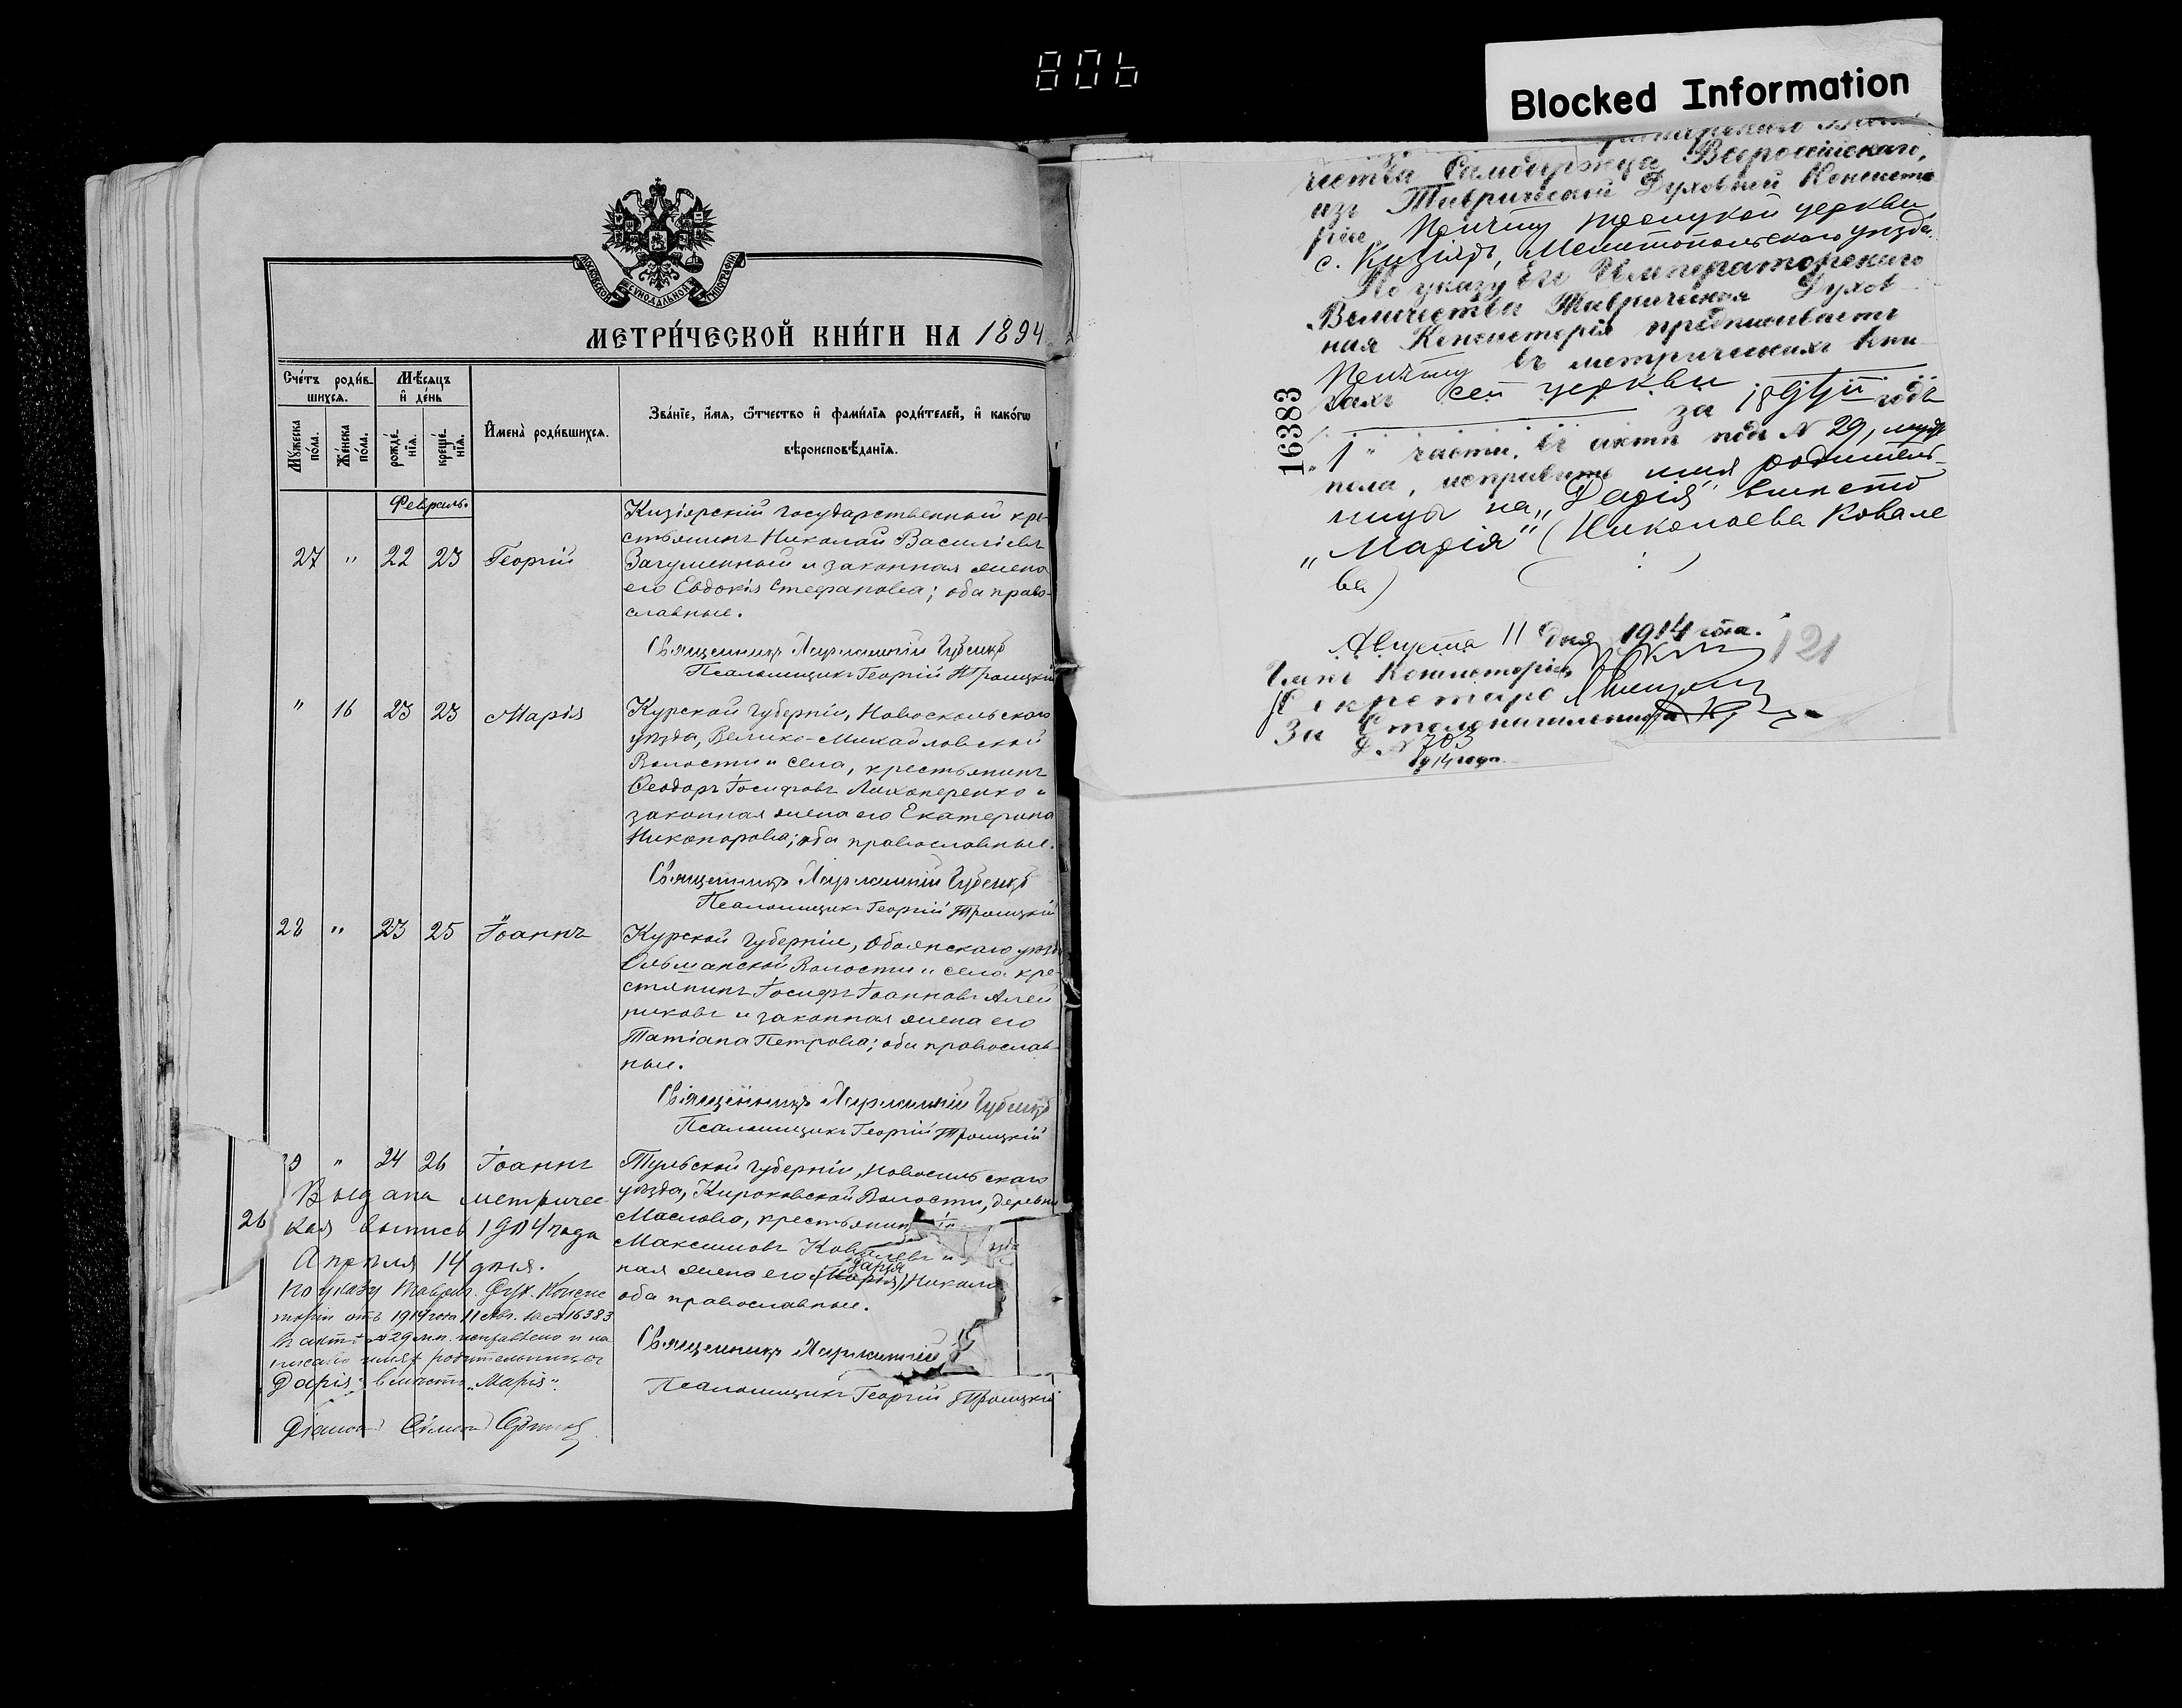 806
Blocked Information
МОСКОВСКОЙ СУНОДАЛЬНОЙ ТИПОГРАФІИ
МЕТРИ́ЧЕСКОЙ КНИ́ГИ НА 1894
Сче́тъ роди́в-
шихся.
Мѣ́сяцъ
и҆ де́нь
Му́жеска
по́ла.
Же́нска
по́ла.
рожде́-
нїя.
креще́-
нїя.
И҆мена̀ роди́вшихся.
Зва́нїе, и҆́мя, ѻ҆́тчество и҆ фами́лїя роди́телей, и҆ како́гѡ
вѣроисповѣ́данїя.
Февраль.
27 " 22 23 Георгій
Кизіярскій государственный кре-
стьянинъ Николай Василіевъ
Загуменный и законная жена
его Евдокія Стефанова; оба право-
славные.
Священникъ Харлампій Губенко
Псаломщикъ Георгій Троицкій
" 16 23 23 Марія
Курской губерніи, Новоскольскаго
уѣзда, Велико-Михайловской
Волости и села, крестьянинъ
Ѳеодоръ Іосифовъ Лихоперенко и
законная жена его Екатерина
Никанорова; оба православные.
Священникъ Харлампій Губенко
Псаломщикъ Георгій Троицкій
28 " 23 25 Іоаннъ
Курской губерніи, Обоянскаго уѣзда
Ольшанской Волости и села кре-
стянинъ Іосифъ Іоанновъ Алей
никовъ и законная жена его
Татіана Петрова; оба православ-
ные.
Священникъ Харлампій Губенко
Псаломщикъ Георгій Троицкій
9 " 24 26 Іоаннъ
Тульской губерніи, Новосильскаго
уѣзда, Кироковской Волости, деревни
Маслова, крестьянин
Максимовъ Ковалевъ и
Дарія
ная жена его (Марія) Никола
оба православные.
Священникъ Харлампій
Псаломщикъ Георгій Троицкій
26
Выдана метричес-
кая выпись 1904 года
Апрѣля 14 дня.
По указу Таврич. Дух. Консис
торіи отъ 1914 года 11 Авг. за № 16383
въ актѣ № 29 м.п. исправлено и на
писано имя родительницы
Дарія" вмѣсто „Марія".
16383
чества Самодержца Всероссійскаго,
изъ Таврической Духовной Консисто
ріи, Причту Троицкой церкви
с. Кизіяръ, Мелитопольскаго уѣзда.
По указу Его Императорскаго
Величества Таврическая Духов
ная Консисторія предписываетъ
Причту въ метрическихъ кни
гахъ сей церкви
за 1894й годъ
„1" части, въ актѣ подъ № 29, муж
пола, исправить имя родитель-
ницы на „Дарія" вмѣсто
„Марія" (Николаева Ковале
ва)
Августа 11 дня 1914 года.
121
Членъ Консисторіи
Секретарь
За Столоначальника
Д. № 703
1914 года.